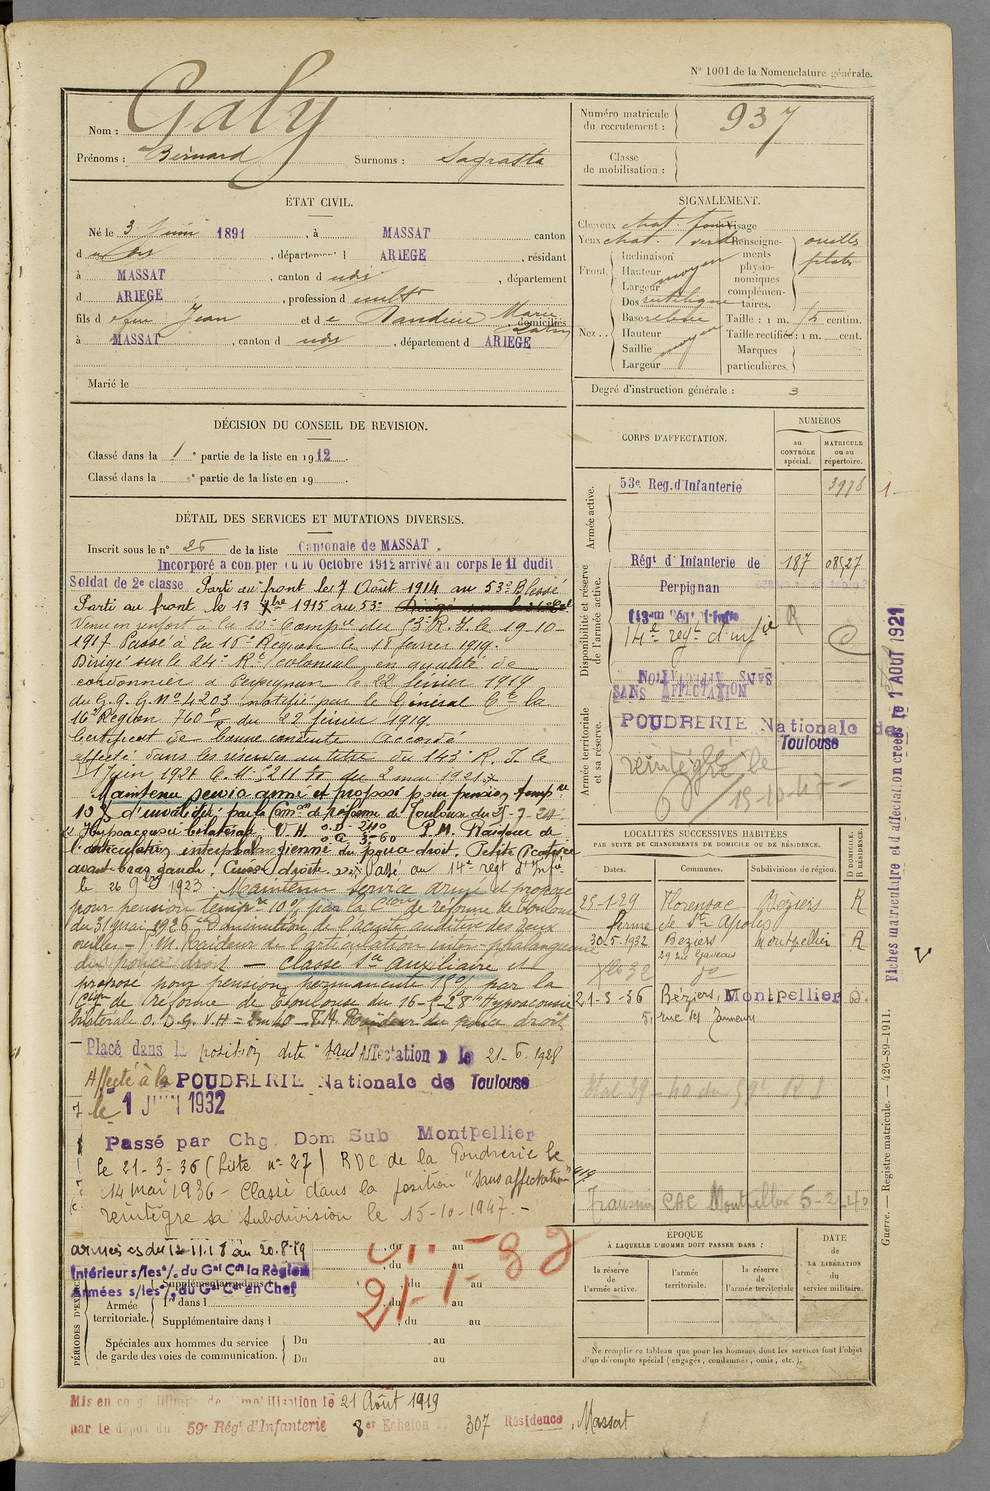 N° 1001 de la Nomenclature générale.
Nom : Galy
Prénoms : Bernard Surnoms :
Numéro matricule du recrutement : 937
Classe de mobilisation :
ÉTAT CIVIL.
Né le 3 Juin 1891, à MASSAT canton
d udit, département d ARIEGE, résidant
à MASSAT, canton d udit, département
d ARIEGE, profession de cult
fils de feu Jean et de Marie
domiciliés
à MASSAT, canton d udit, département d ARIEGE
Marié le
SIGNALEMENT.
Cheveux chat. Visage
Yeux chat. verd Renseignements physionomiques complémentaires. oreilles plates
Front. Inclinaison
Hauteur moyen
Largeur
Nez. Dos rectiligne
Base relevée
Hauteur
Saillie moyen
Largeur
Taille : 1 m. centim.
Taille rectifiée : 1 m. cent.
Marques particulières.
Degré d'instruction générale : 3
DÉCISION DU CONSEIL DE REVISION.
Classé dans la 1e partie de la liste en 1912.
Classé dans la e partie de la liste en 19
DÉTAIL DES SERVICES ET MUTATIONS DIVERSES.
Inscrit sous le n° 25 de la liste Cantonale de MASSAT.
Incorporé à compter du 10 Octobre 1912 arrivé au corps le 11 dudit
Soldat de 2e classe Parti au front le 7 Août 1914 au 53e Blessé
Parti au front le 13 bre 1915 au 53e
Venu en renfort à la 10e Compie du 53e R.I. le 19-10-
1917 Passé à la 16e Région le 18 février 1919.
Dirigé sur le 24e Rt Colonial en qualité de
cordonnier à Perpignan le 22 février 1919
du G.Q.G. N° 4203 notifié par le Général Ct la
16e Région 760 du 22 février 1919.
Certificat de bonne conduite accordé
affecté dans les réserves au titre du 143e R.I. le
1 Juin 1921 C.M. 3211 du 2 mai 1921
Maintenu service armé et proposé pour pension tempre
10 % d'invalidité par la Comon de réforme de Toulouse du 25-7-24
Hypoacousie bilatérale V.H. P.M. Raideur de
l'articulation interphalangienne du pouce droit. Petite cicatrice
avant bras gauche, Cuisse droite. Passé au 14e régt d'Infie
le 26 9bre 1923. Maintenu service armé et proposé
pour pension tempre 10% par la Con de réforme de Toulouse
du 31 mai 1926 Diminution de l'acuité auditive des deux
oreilles - P.M. Raideur de l'articulation inter-phalangienne
du pouce droit — Classé Sce auxiliaire et
proposé pour pension permanente 15% par la
Con de réforme de Toulouse du 16-5-28 "Hypoacousie
bilatérale O.D.G. V.H = P.M. Raideur du pouce droit
Placé dans la position dite "Sans Affectation" le 21-6-1928
Affecté à la POUDRERIE Nationale de Toulouse
le 1 JUIN 1932
Passé par Chg. Dom Sub Montpellier
le 21-3-36 (Liste n° 27) RDC de la Poudrerie le
14 mai 1936 - Classé dans la position "Sans affectation"
réintègre sa Subdivision le 15-10-1947. -
CORPS D'AFFECTATION.
NUMÉROS
au CONTRÔLE spécial.
MATRICULE ou au répertoire.
Armée active.
53e Reg. d'Infanterie 3978
Disponibilité et réserve de l'armée active.
Régt d'Infanterie de Perpignan 187 08527
143em Rég. d'Infie R
14e regt d'infie
Armée territoriale et sa réserve.
SANS AFFECTATION
SANS AFFECTATION
POUDRERIE Nationale de
Toulouse
réintégré le
15-10-47
LOCALITÉS SUCCESSIVES HABITÉES
PAR SUITE DE CHANGEMENTS DE DOMICILE OU DE RÉSIDENCE.
Dates. Communes. Subdivisions de région. D DOMICILE. R RÉSIDENCE.
25-1-29 Florensac Béziers R
ferme de St Apolis
30-5-1932 Beziers Montpellier R
21-3-36 Béziers, Montpellier D.
5, rue des
Transmis CAC Montpellier 5-2-40
Fiches matriculaire et d'affectation créées le 1 AOUT 1921
Guerre. — Registre matricule. — 426-89-1911.
ÉPOQUE
À LAQUELLE L'HOMME DOIT PASSER DANS :
la réserve de l'armée active.
l'armée territoriale.
la réserve de l'armée territoriale
DATE de LA LIBÉRATION du service militaire.
Ne remplir ce tableau que pour les hommes dont les services font l'objet
d'un décompte spécial (engagés, condamnés, omis, etc.).
PÉRIODES D'EXERCICES
armées du 12-11-18 au 20.8.19
Intérieur s/les % du Gal Cdt la Région
Armées s/les % du Gal Cdt en Chef
Supplémentaire dans l
Armée territoriale. 1re dans l , du au
Supplémentaire dans l , du au
Spéciales aux hommes du service de garde des voies de communication. Du au
Du au
21-1-32
Mis en congé illimité de démobilisation le 21 Août 1919
par le dépôt du 59e Régt d'Infanterie 8er Echelon 307 Résidence, Massat